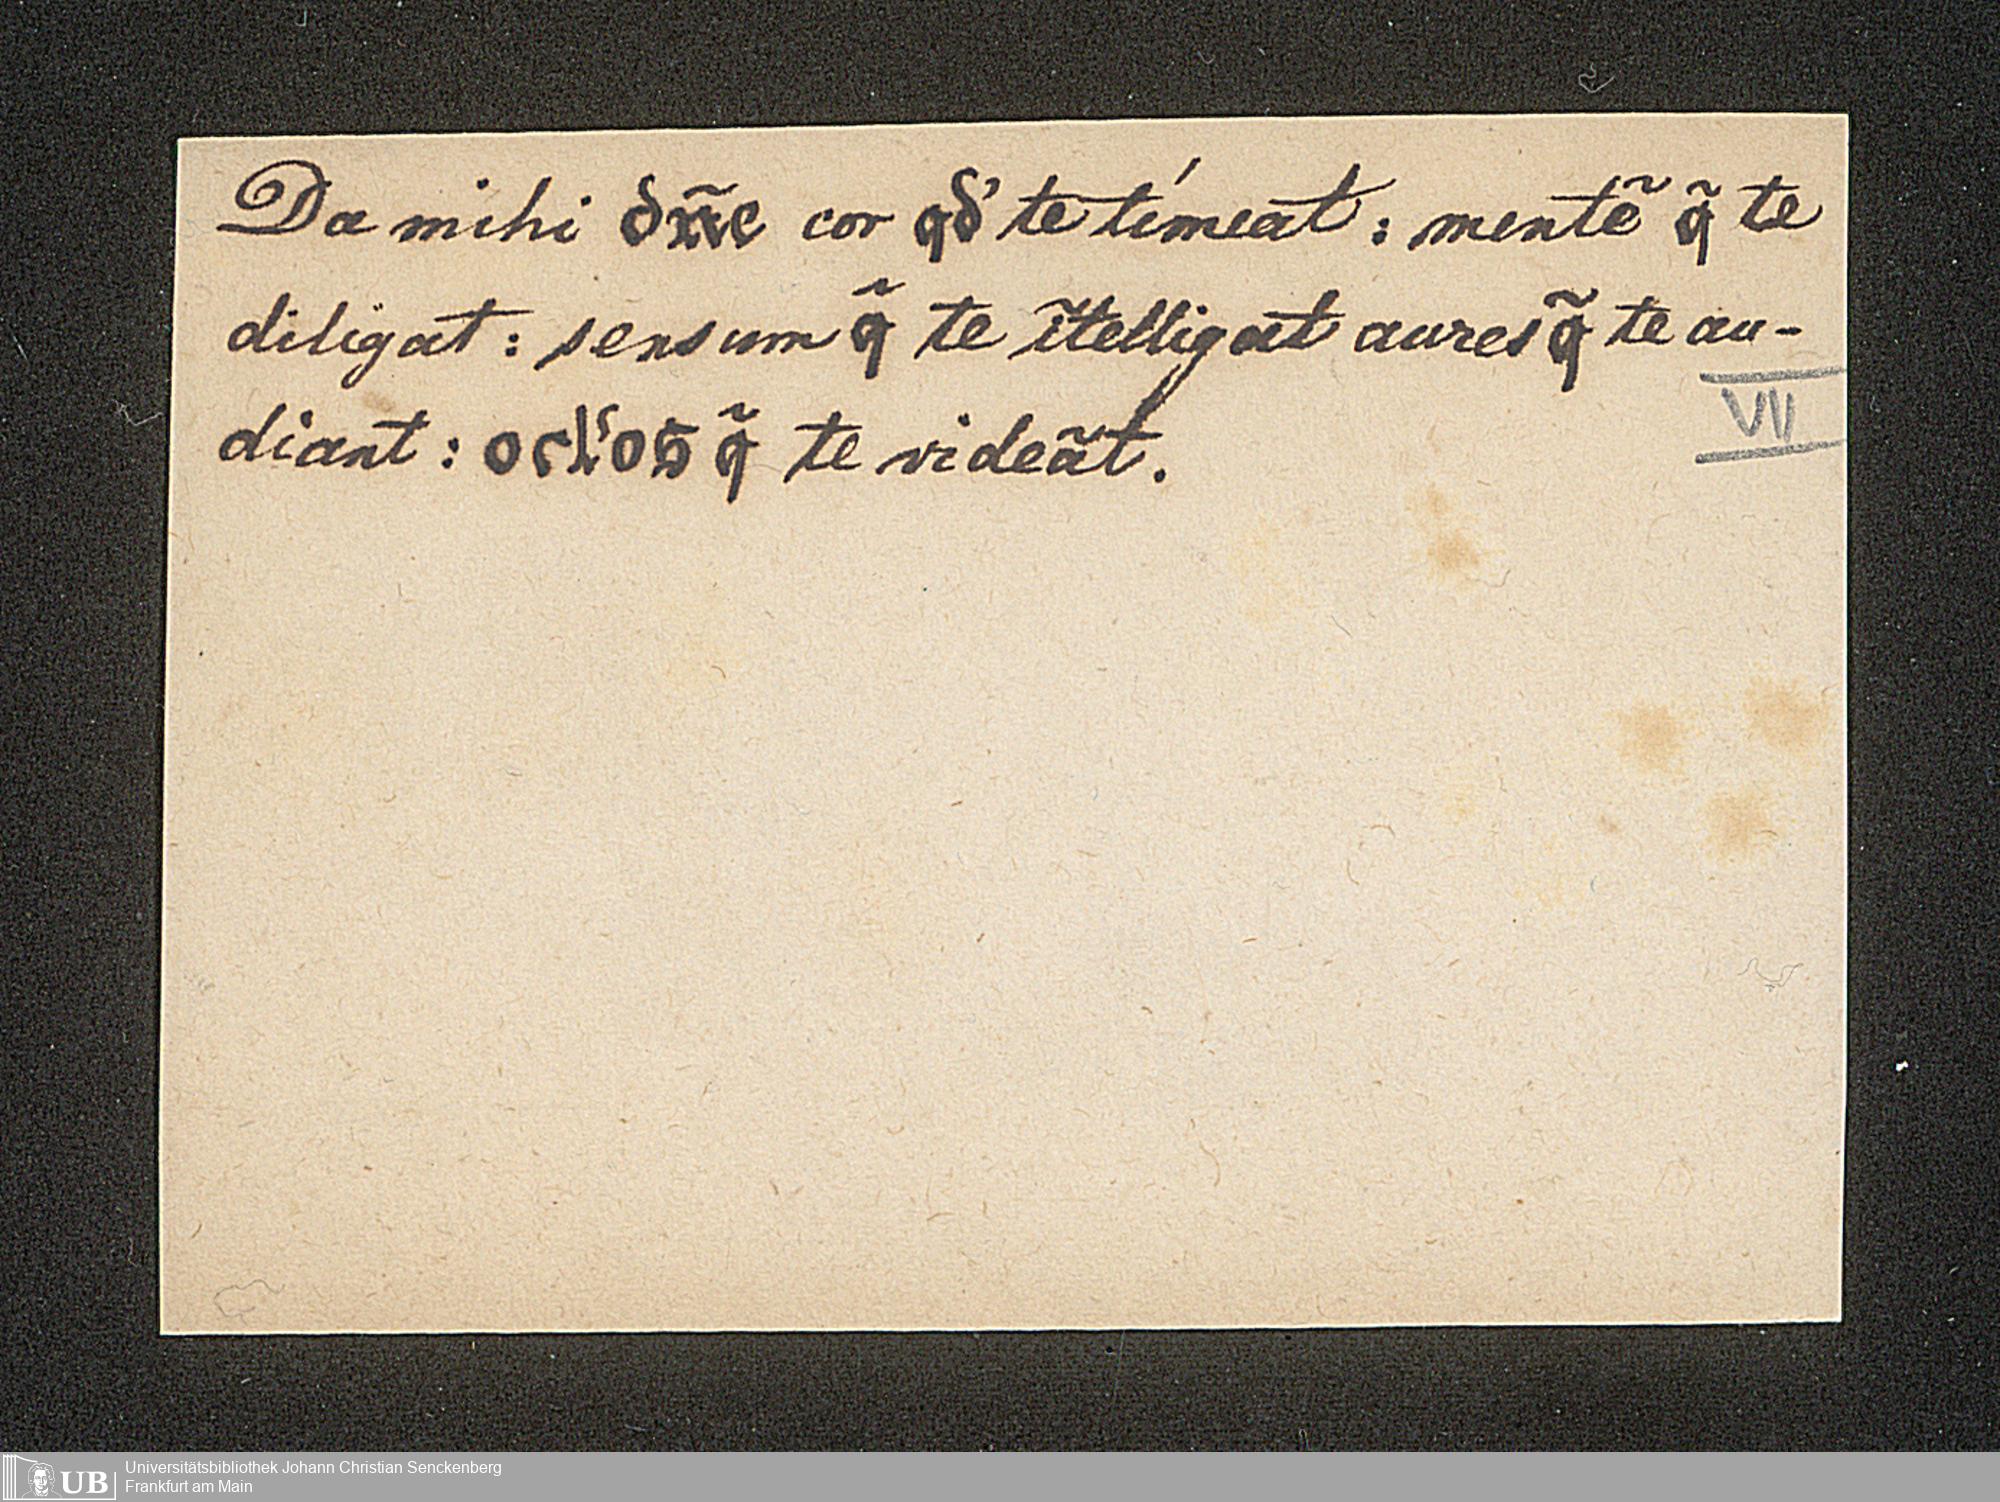 Da mihi dñe cor qd' te tímeat : mentẽ q̃ te
diligat : sensum q̃ te ĩtelligat aures q̃ te au-
diant : ocl'os q̃ te videãt.
VII
UB
Universitätsbibliothek Johann Christian Senckenberg
Frankfurt am Main